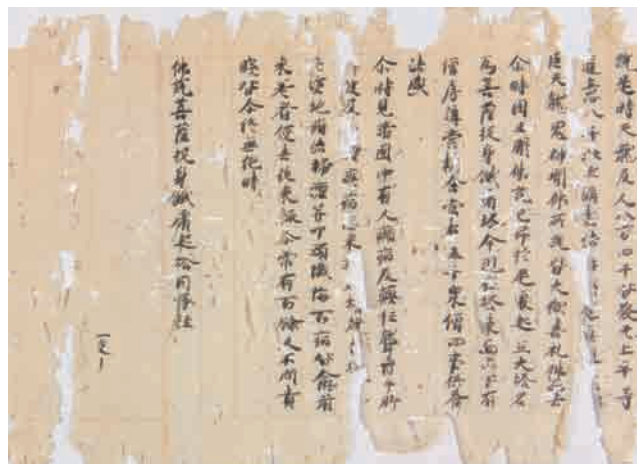 說是時天龍及人八万四千皆發无上平等
道意八千比丘漏盡意
臣天龍鬼神聞佛所說皆大歡喜礼佛而去
尒時國王聞佛說已即於是處起立大塔名
為菩薩投身餓虎塔今現在塔東面山下有
僧房講堂精舍常有五千眾僧四事供養
法盛
尒時見諸國中有人癩病及癲狂聾盲手腳
疾病悉來
塗地脩治掃灑并叩頭懺悔百病皆愈前
來差者便去後來輒尒常有百餘人不問貴
賤皆尒終無絕時
佛說菩薩投身餓虎起塔因緣經
一交了